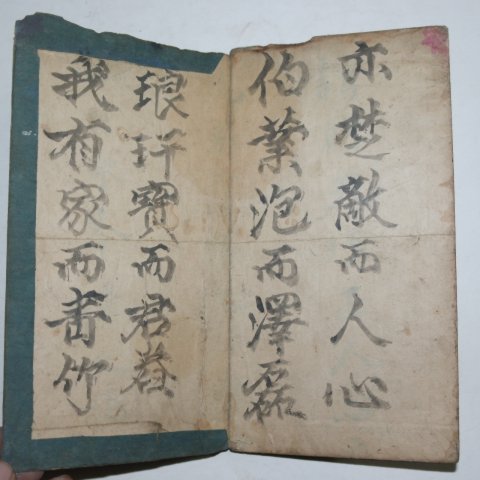 亦楚敵而人心
伯業泡而澤磊
琅玕寶而君巷
我有家而書竹